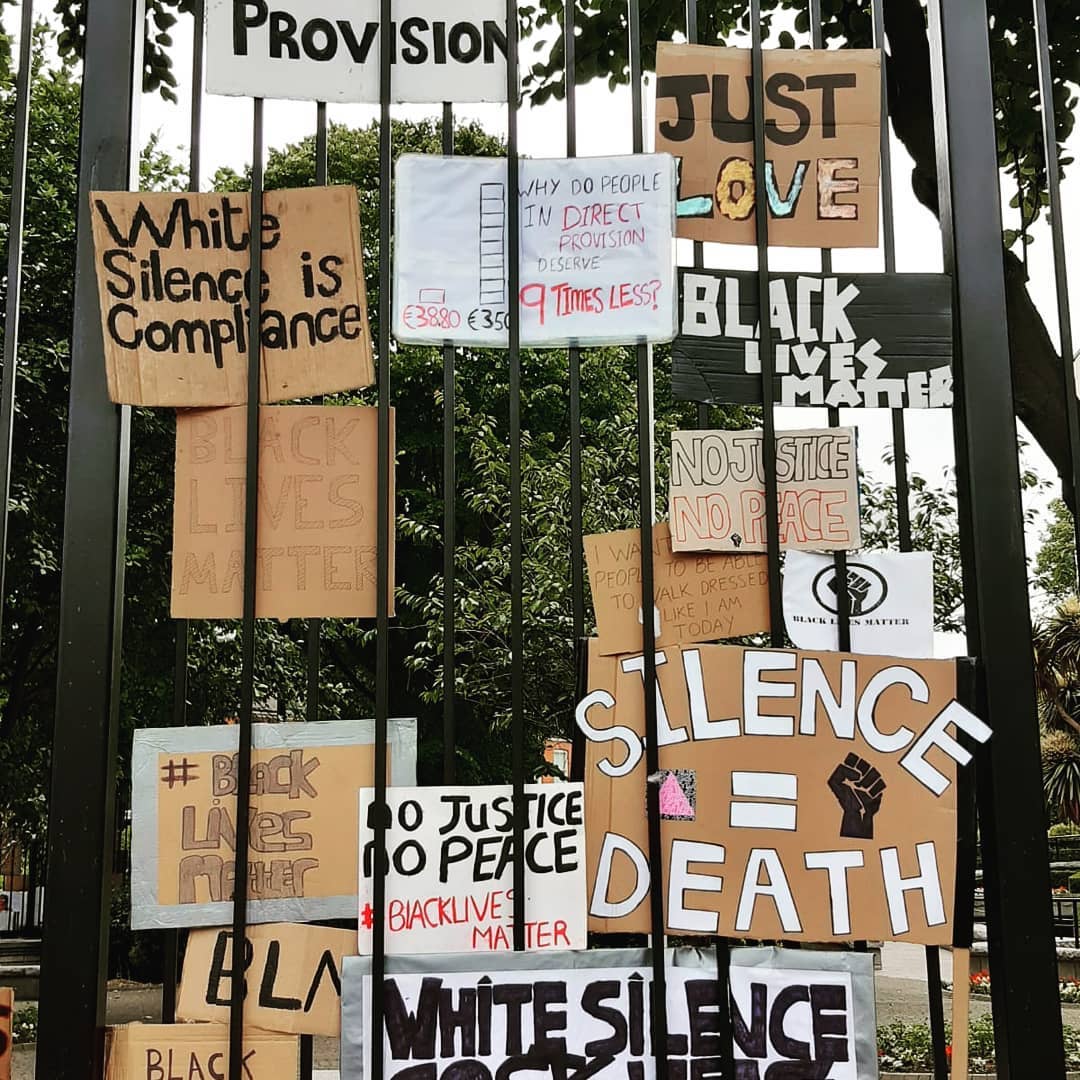 PROVISION
JUST
LOVE
White
Silence is
Compliance
WHY DO PEOPLE
IN DIRECT
PROVISION
DESERVE
9 TIMES LESS?
€38.80 €350
BLACK
LIVES
MATTER
BLACK
LIVES
MATTER
NO JUSTICE
NO PEACE
I WANT
PEOPLE TO BE ABLE
TO WALK DRESSED
LIKE I AM
TODAY
BLACK LIVES MATTER
SILENCE
=
DEATH
# BLACK
LIVES
MATTER
NO JUSTICE
NO PEACE
# BLACKLIVES
MATTER
BLA
BLACK
WHITE SILENCE